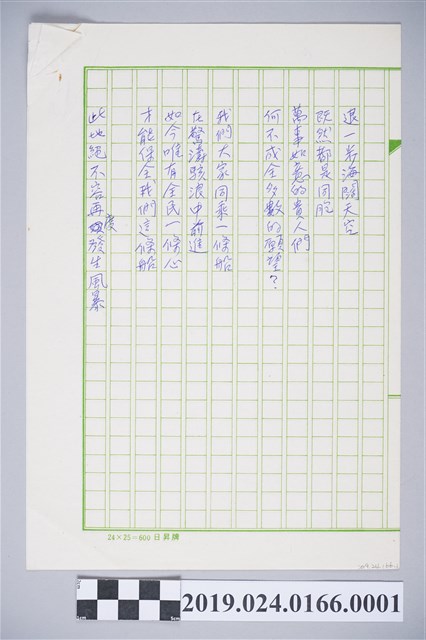 退一步海闊天空
既然都是同胞
萬事如意的貴人們
何不成全多數的願望？
我們大家同乘一條船
在驚濤駭浪中前進
如今唯有全民一條心
才能保全我們這條船
此地絕不容再度發生風暴
24×25=600 日昇牌
2019.024.0166.0001